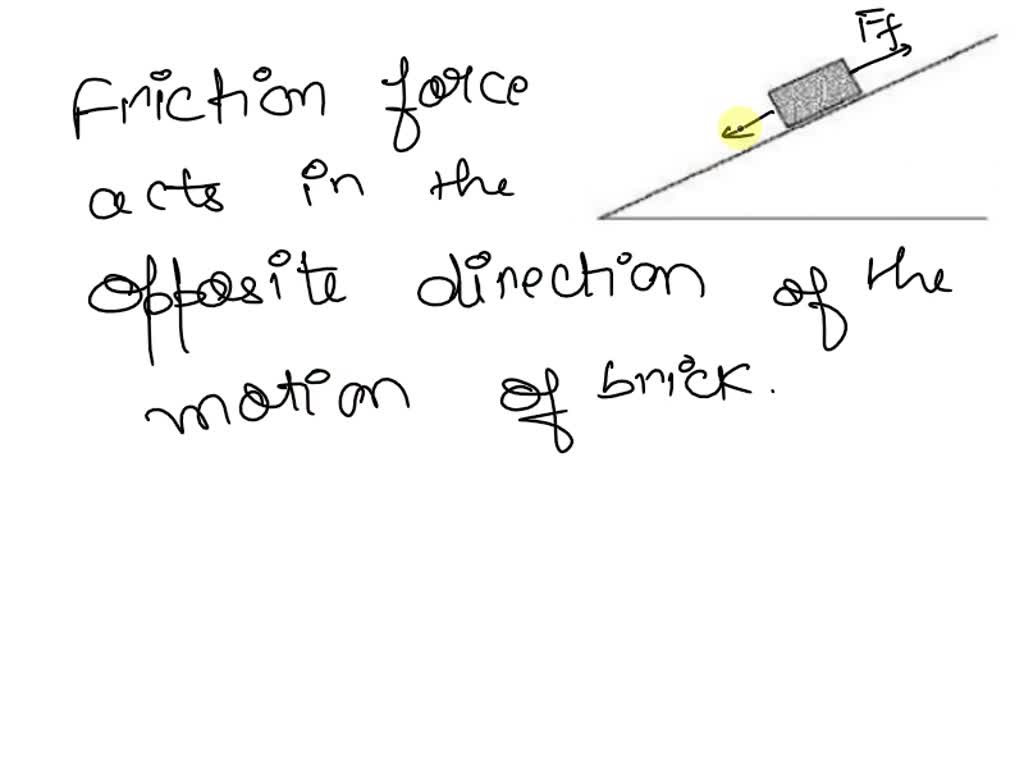 Friction force
acts in the
opposite direction of the
motion of brick.
Ff